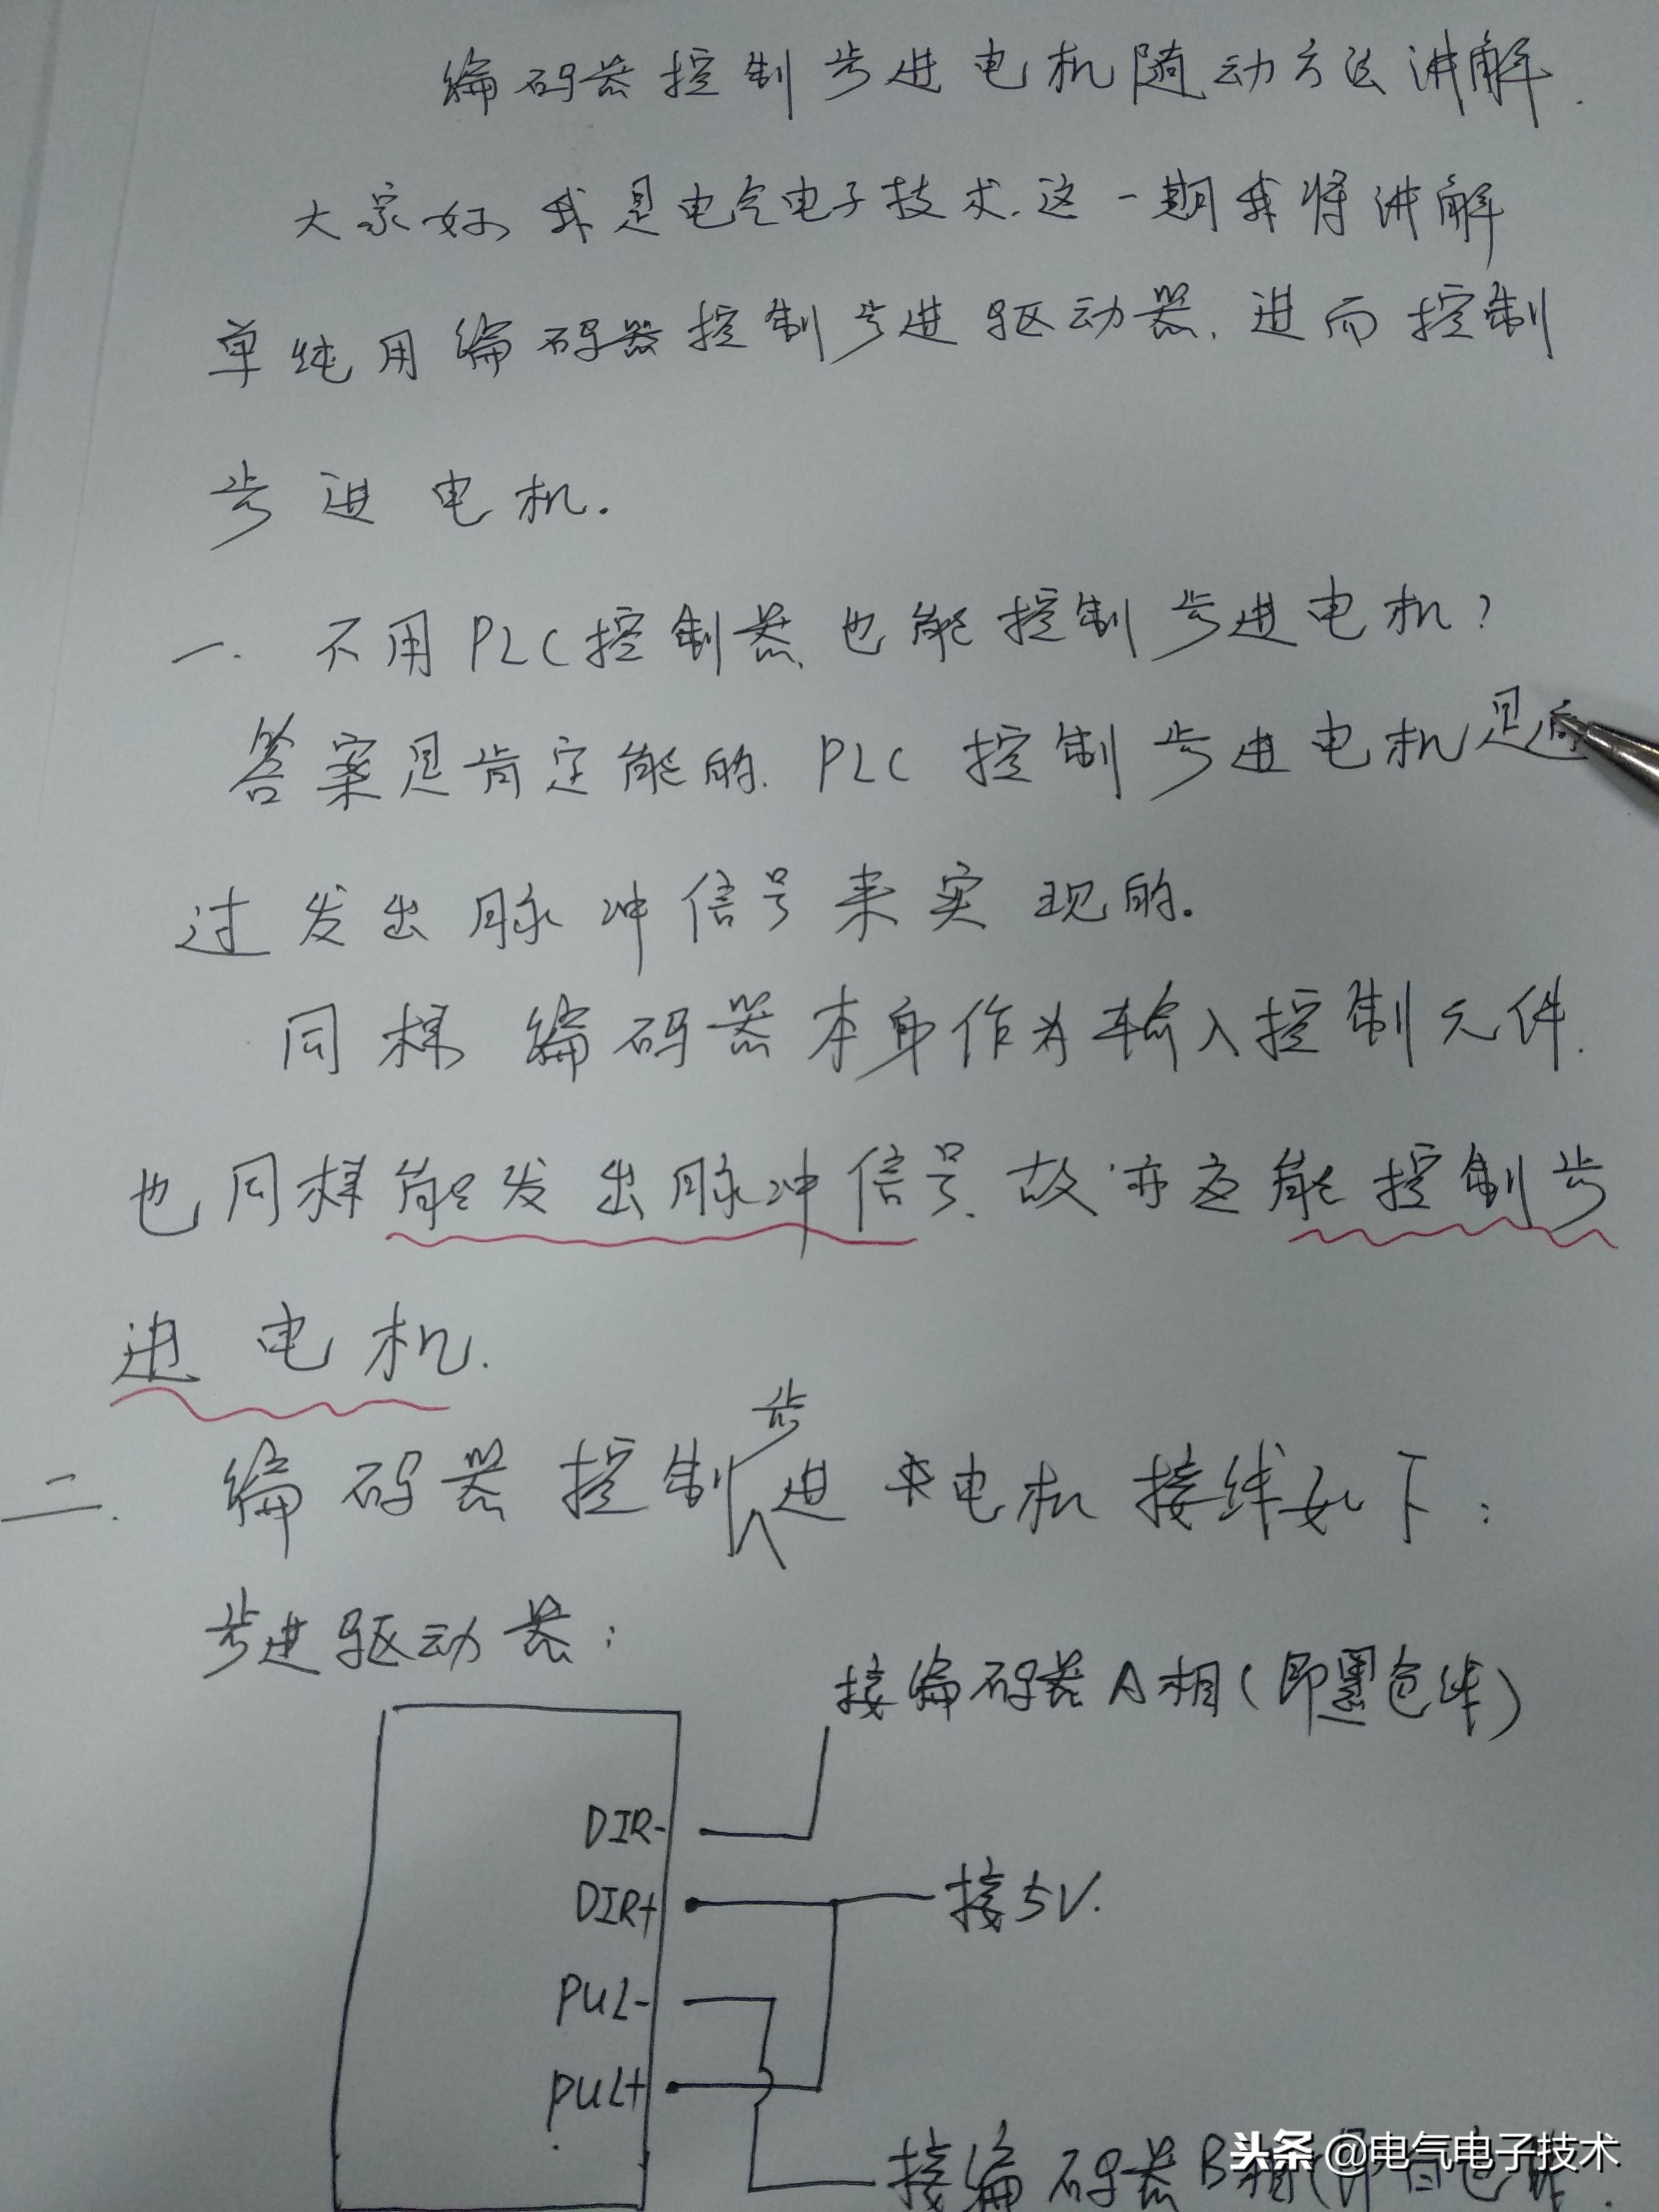 编码器控制步进电机随动方法讲解.
大家好,我是电气电子技术.这一期我将讲解
单纯用编码器控制步进驱动器.进而控制
步进电机.
一. 不用PLC控制器也能控制步进电机?
答案是肯定能的.PLC控制步进电机是通
过发出脉冲信号来实现的。
同样编码器本身作为输入控制元件.
也同样能发出脉冲信号.故亦应能控制步
进电机.
二. 编码器控制步进电机接线如下:
步进驱动器:
接编码器A相(即黑色线)
DIR-
DIR+ 接5V.
PUL-
PUL+
接编码器B相(即白色线
头条@电气电子技术